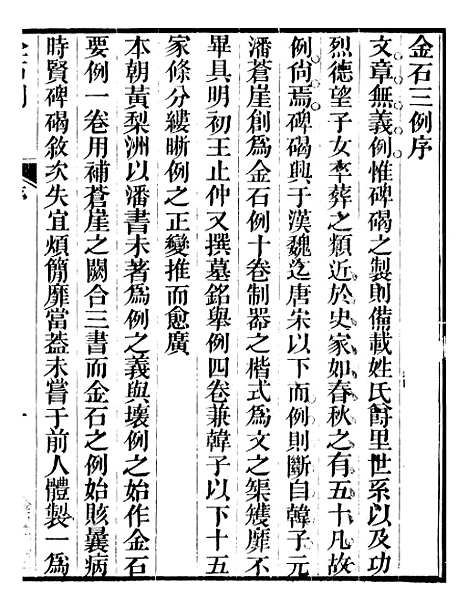 金石三例序
文章無義例惟碑碣之製則備載姓氏爵里世系以及功
烈德望子女卒葬之類近於史家如春秋之有五十凡故
例尚焉碑碣興于漢魏迄唐宋以下而例則斷自韓子元
潘蒼崖創爲金石例十卷制器之楷式爲文之榘矱靡不
畢具明初王止仲又撰墓銘舉例四卷兼韓子以下十五
家條分縷晰例之正變推而愈廣
本朝黃梨洲以潘書未著爲例之義與壞例之始作金石
要例一卷用補蒼崖之闕合三書而金石之例始賅曩病
時賢碑碣敘次失宜煩簡靡當葢未嘗于前人體製一爲